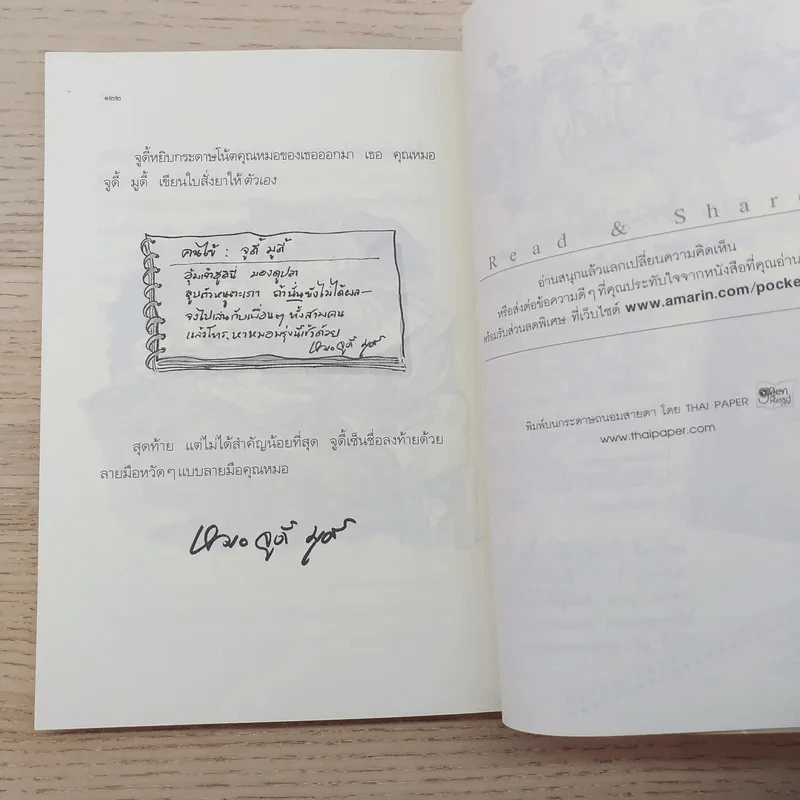 ๑๒๒
จูดี้หยิบกระดาษโน้ตคุณหมอของเธอออกมา เธอ คุณหมอ
จูดี้ มูดี้ เขียนใบสั่งยาให้ตัวเอง
คนไข้ : จูดี้ มูดี้
อุ้มเจ้าชูลนี่ มองดูปลา
ลูบตัวหนูตะเภา ถ้านั่นยังไม่ได้ผล—
จงไปเล่นกับเพื่อนๆ ทั้งสามคน
แล้วโทร.หาหมอพรุ่งนี้เช้าด้วย
หมอ จูดี้ มูดี้
สุดท้าย แต่ไม่ได้สำคัญน้อยที่สุด จูดี้เซ็นชื่อลงท้ายด้วย
ลายมือหวัดๆ แบบลายมือคุณหมอ
หมอ จูดี้ มูดี้
Read & Share
อ่านสนุกแล้วแลกเปลี่ยนความคิดเห็น
หรือส่งต่อข้อความดีๆ ที่คุณประทับใจจากหนังสือที่คุณอ่าน
พร้อมรับส่วนลดพิเศษ ที่เว็บไซต์ www.amarin.com/pocke
พิมพ์บนกระดาษถนอมสายตา โดย THAI PAPER Green Read
www.thaipaper.com